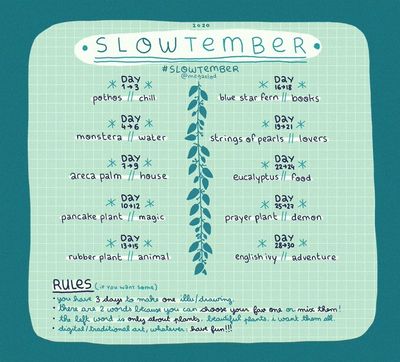 2020
SLOWTEMBER
#SLOWTEMBER
@megaelod
DAY
1→3
pothos // chill
DAY
4→6
monstera // water
DAY
7→9
areca palm // house
DAY
10→12
pancake plant // magic
DAY
13→15
rubber plant // animal
DAY
16→18
blue star fern // books
DAY
19→21
strings of pearls // lovers
DAY
22→24
eucalyptus // food
DAY
25→27
prayer plant // demon
DAY
28→30
english ivy // adventure
RULES (if you want some)
• you have 3 days to make one illu/drawing.
• there are 2 words because you can choose your fav one or mix them!
• the left word is only about plants, beautiful plants. i want them all.
• digital/traditional art, whatever: have fun!!!